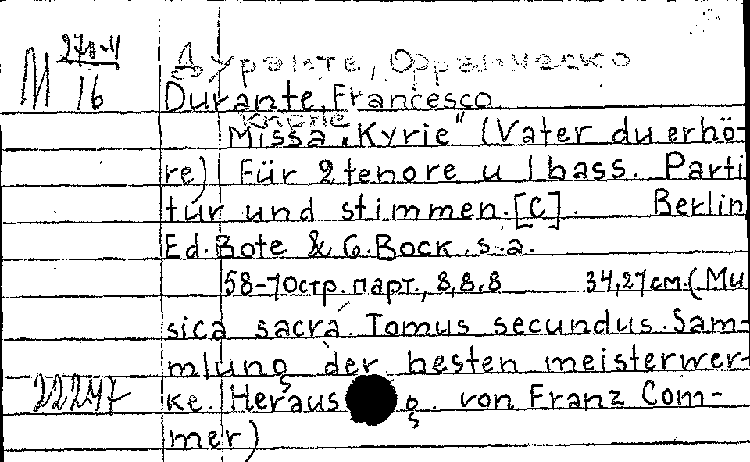 М 270-4
16
Дуранте, Франческо
Durante, Francesco
Kyrie
Missa „Kyrie" (Vater du erhö-
re) Für 2 tenore u 1 bass. Parti
tur und stimmen. [C]. Berlin
Ed. Bote & G. Bock. s. a.
58-70 стр. парт., 8, 8, 8 34, 27 см. (Mu
sica sacra Tomus secundus. Sam-
mlung der besten meisterwer-
22247
ke. Heraus g. von Franz Com-
mer)